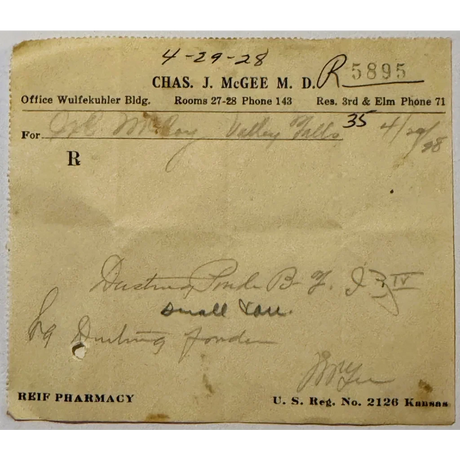 4-29-28
CHAS. J. McGEE M. D. R 5895
Office Wulfekuhler Bldg. Rooms 27-28 Phone 143 Res. 3rd & Elm Phone 71
For McCoy Valley Falls 35 4/29/28
R
Dusting
Small
Sig Dusting
McGee
REIF PHARMACY U. S. Reg. No. 2126 Kansas